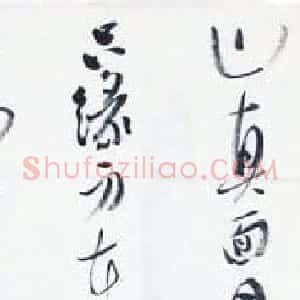 山真面目
只缘身在
Shufaziliao.COM